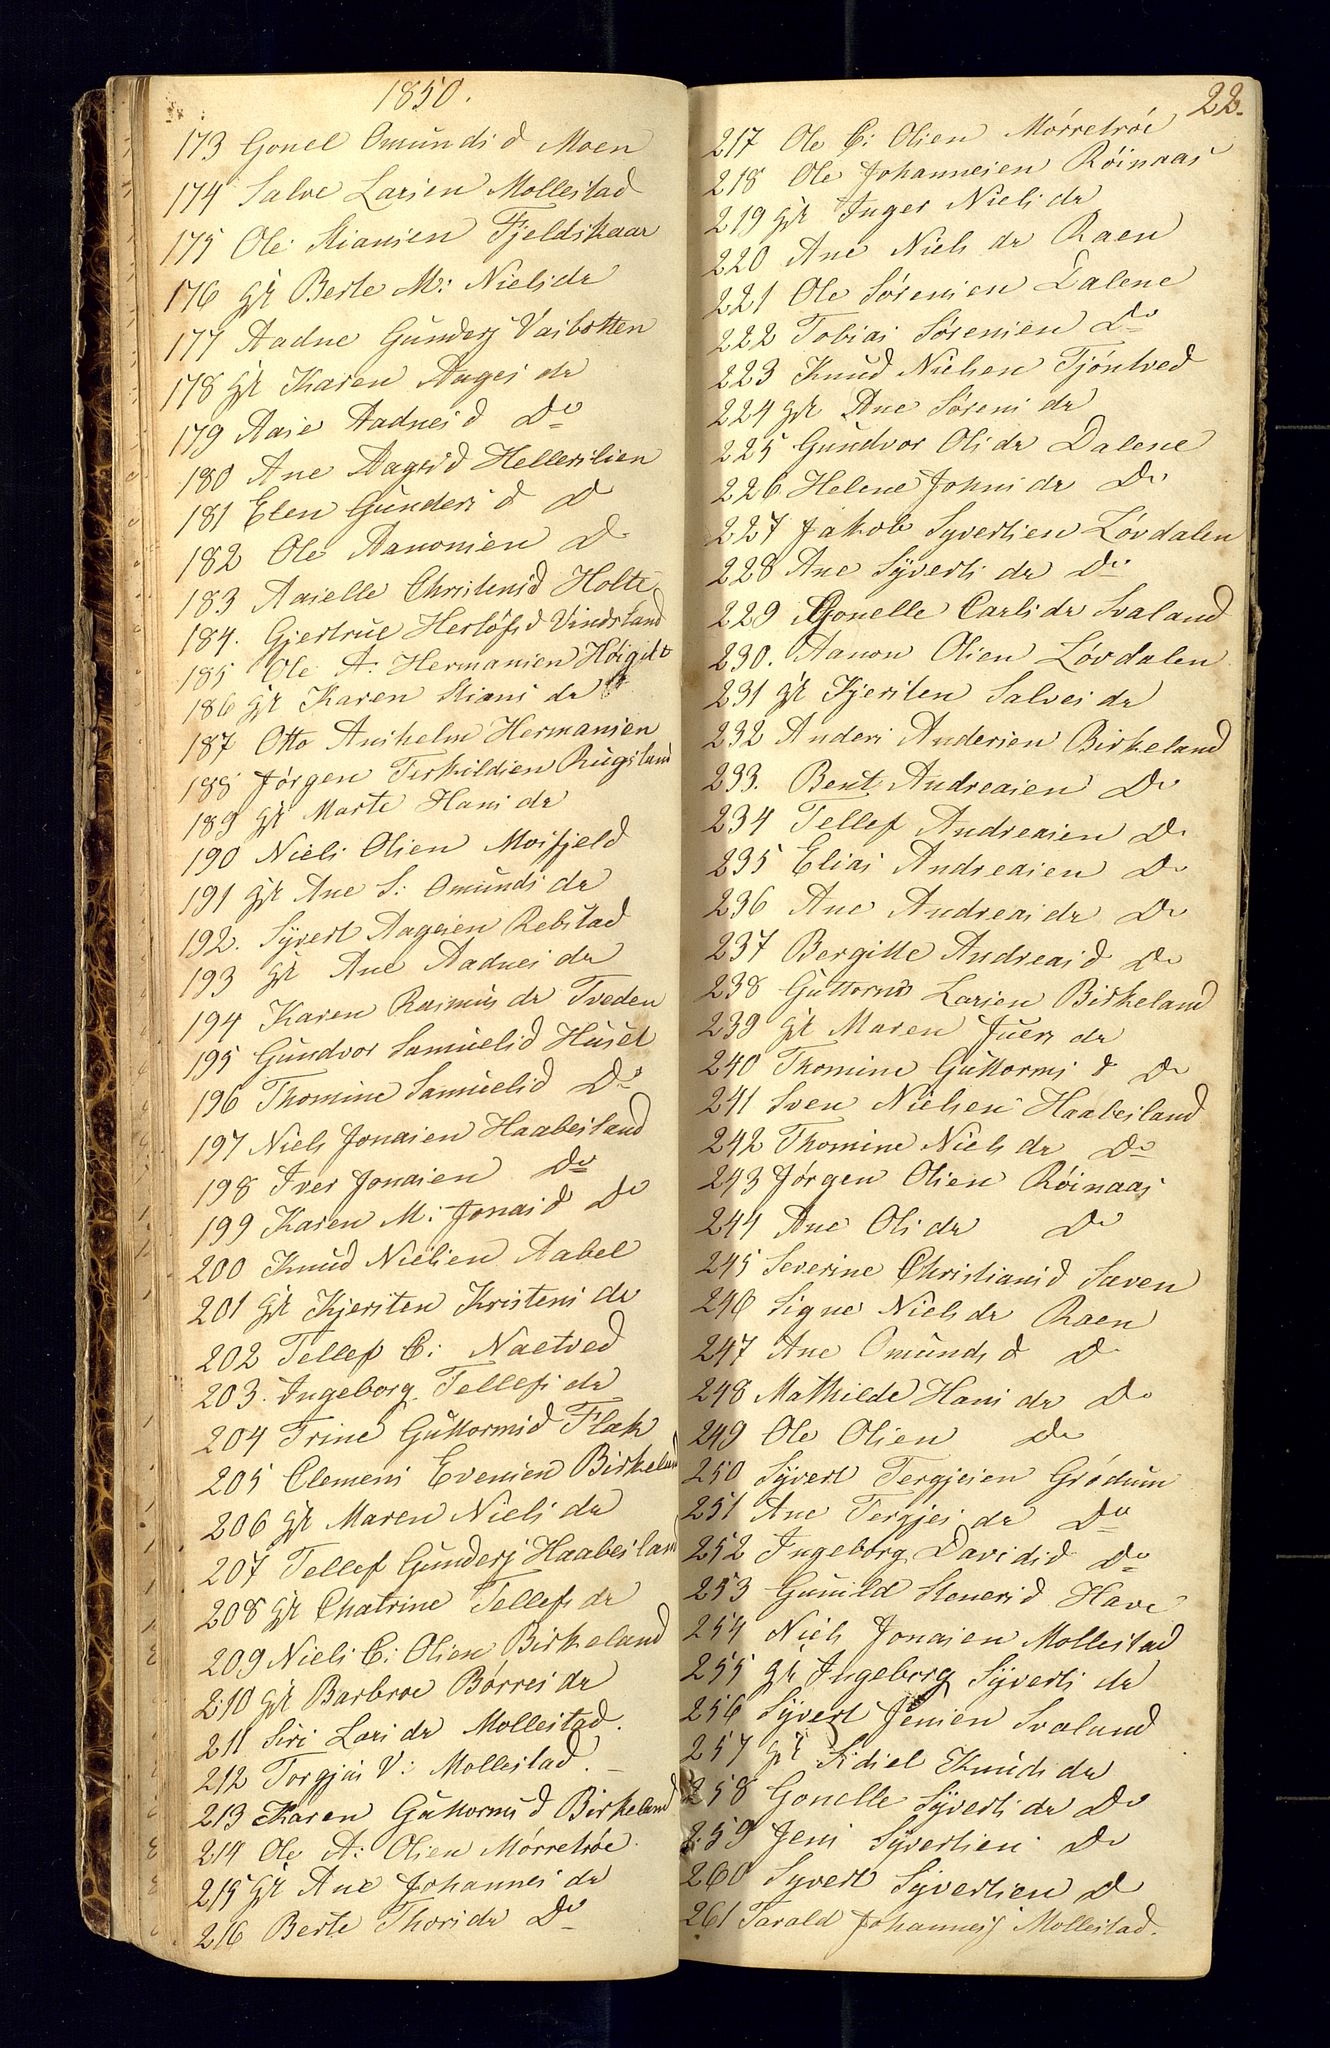 1850.
173 Gonel Omundsd Moen
174 Salve Larsen Mollestad
175 Ole Stiansen Fjeldskaar
176 gk Berte M: Nielsdr
177 Aadne Gundersj Vasbotten
178 gk Karen Aagesdr
179 Aase Aadnesd Do
180 Ane Aagesd Hellerslien
181 Elen Gundersd Do
182 Ole Aanonsen Do
183 Aaselle Christensd Holte
184. Gjertrue Herlöfsd Vindsland
185 Ole A: Hermansen Höigilt
186 gk Karen Stiansdr
187 Otto Anshelm Hermansen
188 Jørgen Terkildsen Rugsland
189 gk Marte Hansdr
190 Niels Olsen Mosfjeld
191 gk Ane S: Omundsdr
192. Syvert Aagesen Rebstad
193 gk Ane Aadnesdr
194 Karen Rasmusdr Tveden
195 Gundvor Samuelsd Huset
196 Thomine Samuelsd Do
197 Niels Jonasen Haabesland
198 Iver Jonasen Do
199 Karen M: Jonasd Do
200 Knud Nielsen Aabel
201 gk Kjersten Kristensdr
202 Tellef C: Naetved
203. Ingeborg Tellefsdr
204 Trine Guttormsd Flak
205 Clemens Evensen Birkeland
206 gk Maren Nielsdr
207 Tellef Gundersj Haabesland
208 gk Chatrine Tellefsdr
209 Niels C: Olsen Birkeland
210 gk Barbroe Börresdr
211 Siri Larsdr Mollestad.
212 Torgjus V: Mollestad.
213 Karen Guttormsd Birkeland
214 Ole A: Olsen Mörretröe
215 gk Ane Johannesdr
216 Berte Thorsdr Do
22.
217 Ole C: Olsen Mörretröe
218 Ole Johannesen Röinaas
219 gk Inger Nielsdr
220 Ane Nielsdr Raen
221 Ole Sörensen Dalene
222 Tobias Sörensen Do
223 Knud Nielsen Tjöntved
224 gk Ane Sörensdr
225 Gundvor Olsdr Dalene
226 Helene Johnsdr Do
227 Jakob Syvertsen Lövdalen
228 Ane Syvertsdr Do
229 Gonelle Carlsdr Svaland
230. Aanon Olsen Lövdalen
231 gk Kjersten Salvesdr
232 Anders Andersen Birkeland
233. Bent Andreasen Do
234 Tellef Andreasen Do
235 Elias Andreasen Do
236 Ane Andreasdr Do
237 Bergitte Andreasd Do
238 Guttorm Larsen Birkeland
239 gk Maren Juersdr
240 Thomine Guttormsd Do
241 Sven Nielsen Haabesland
242 Thomine Nielsdr Do
243 Jørgen Olsen Röinaas
244 Ane Olsdr Do
245 Severine Christiansd Saven
246 Signe Nielsdr Raen
247 Ane Omundsd Do
248 Mathilde Hansdr Do
249 Ole Olsen Do
250 Syvert Tergjesen Grödum
251 Ane Tergjesdr Do
252 Ingeborg Davidsd Do
253 Gunild Stenersd Have
254 Niels Jonasen Mollestad
255 gk Ingeborg Syvertsdr
256 Syvert Jensen Svaland
257 gk Sidsel Knudsdr
258 Gonelle Syvertsdr Do
259 Jens Syvertsen Do
260 Syvert Syvertsen Do
261 Tarald Johannesj Mollestad.